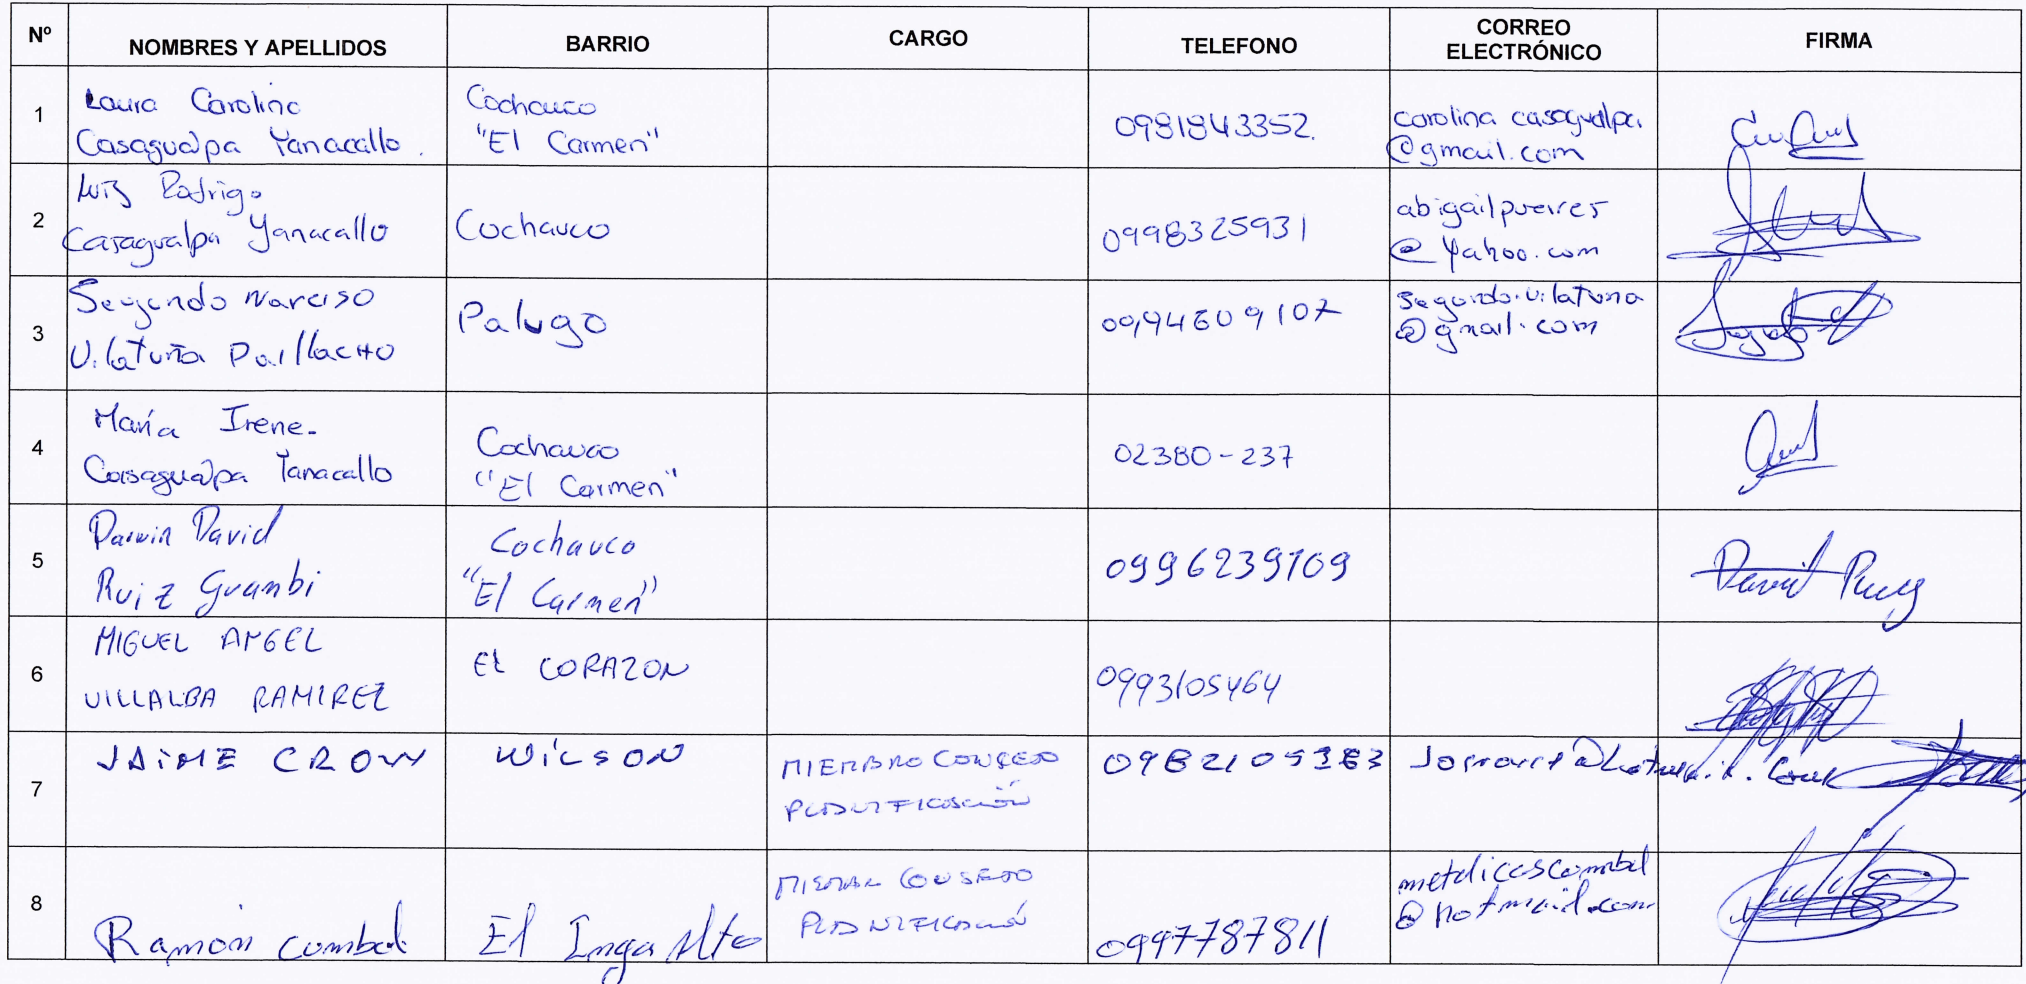 Nº NOMBRES Y APELLIDOS BARRIO CARGO TELEFONO CORREO ELECTRÓNICO FIRMA
1 Laura Carolina Casagualpa Yanacallo. Cochauco "El Carmen" 0981843352. carolina casagualpa @gmail.com
2 Luis Rodrigo Casagualpa Yanacallo Cochauco 0998325931 abigailpuerres @yahoo.com
3 Segundo Narciso Vilatuña Paillacho Palugo 0994609107 segundo.vilatuna @gmail.com
4 María Irene Casagualpa Yanacallo Cochauco "El Carmen" 02380-237
5 Darwin David Ruiz Guambi Cochauco "El Carmen" 0996239109 David Ruiz
6 MIGUEL ANGEL VILLALBA RAMIREZ EL CORAZON 0993105464
7 JAIME CROW WILSON MIEMBRO CONSEJO PLANIFICACIÓN
8 Ramón cumbal El Inga Alto CONSEJO PLANIFICACIÓN 0997787811 metalicascumbal @hotmail.com